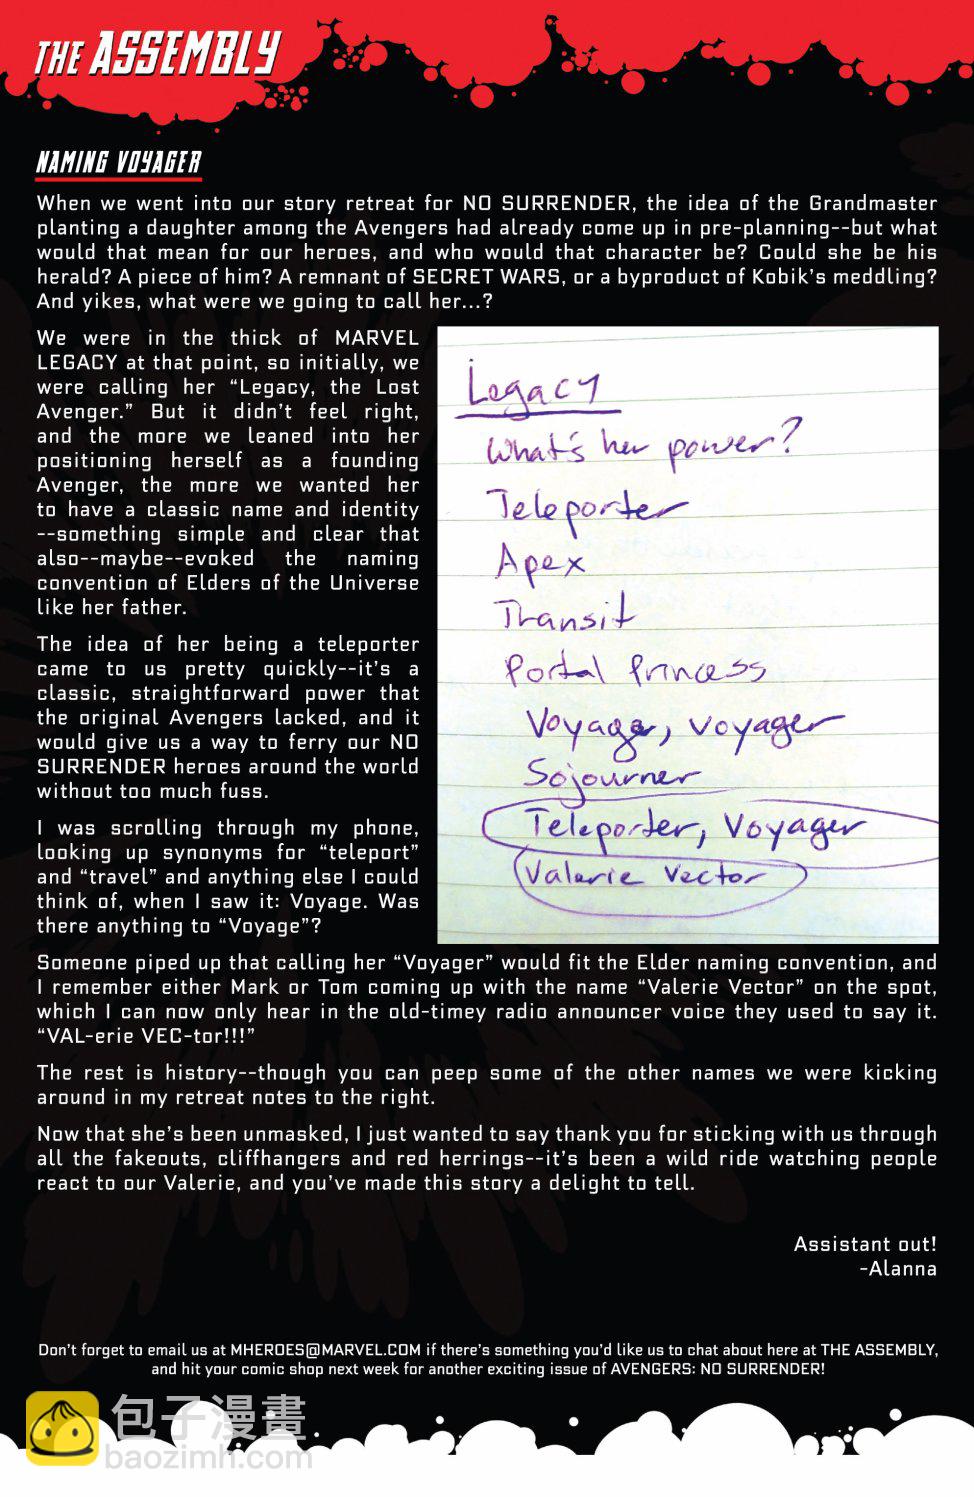 THE ASSEMBLY
NAMING VOYAGER
When we went into our story retreat for NO SURRENDER, the idea of the Grandmaster
planting a daughter among the Avengers had already come up in pre-planning--but what
would that mean for our heroes, and who would that character be? Could she be his
herald? A piece of him? A remnant of SECRET WARS, or a byproduct of Kobik's meddling?
And yikes, what were we going to call her...?
We were in the thick of MARVEL
LEGACY at that point, so initially, we
were calling her “Legacy, the Lost
Avenger.” But it didn't feel right,
and the more we leaned into her
positioning herself as a founding
Avenger, the more we wanted her
to have a classic name and identity
--something simple and clear that
also--maybe--evoked the naming
convention of Elders of the Universe
like her father.
The idea of her being a teleporter
came to us pretty quickly--it's a
classic, straightforward power that
the original Avengers lacked, and it
would give us a way to ferry our NO
SURRENDER heroes around the world
without too much fuss.
I was scrolling through my phone,
looking up synonyms for “teleport”
and “travel” and anything else I could
think of, when I saw it: Voyage. Was
there anything to “Voyage”?
Legacy
What's her power?
Teleporter
Apex
Transit
Portal Princess
Voyager, voyager
Sojourner
Teleporter, Voyager
Valerie Vector
Someone piped up that calling her “Voyager” would fit the Elder naming convention, and
I remember either Mark or Tom coming up with the name “Valerie Vector” on the spot,
which I can now only hear in the old-timey radio announcer voice they used to say it.
“VAL-erie VEC-tor!!!”
The rest is history--though you can peep some of the other names we were kicking
around in my retreat notes to the right.
Now that she's been unmasked, I just wanted to say thank you for sticking with us through
all the fakeouts, cliffhangers and red herrings--it's been a wild ride watching people
react to our Valerie, and you've made this story a delight to tell.
Assistant out!
-Alanna
Don't forget to email us at MHEROES@MARVEL.COM if there's something you'd like us to chat about here at THE ASSEMBLY,
and hit your comic shop next week for another exciting issue of AVENGERS: NO SURRENDER!
包子漫畫
baozimh.com